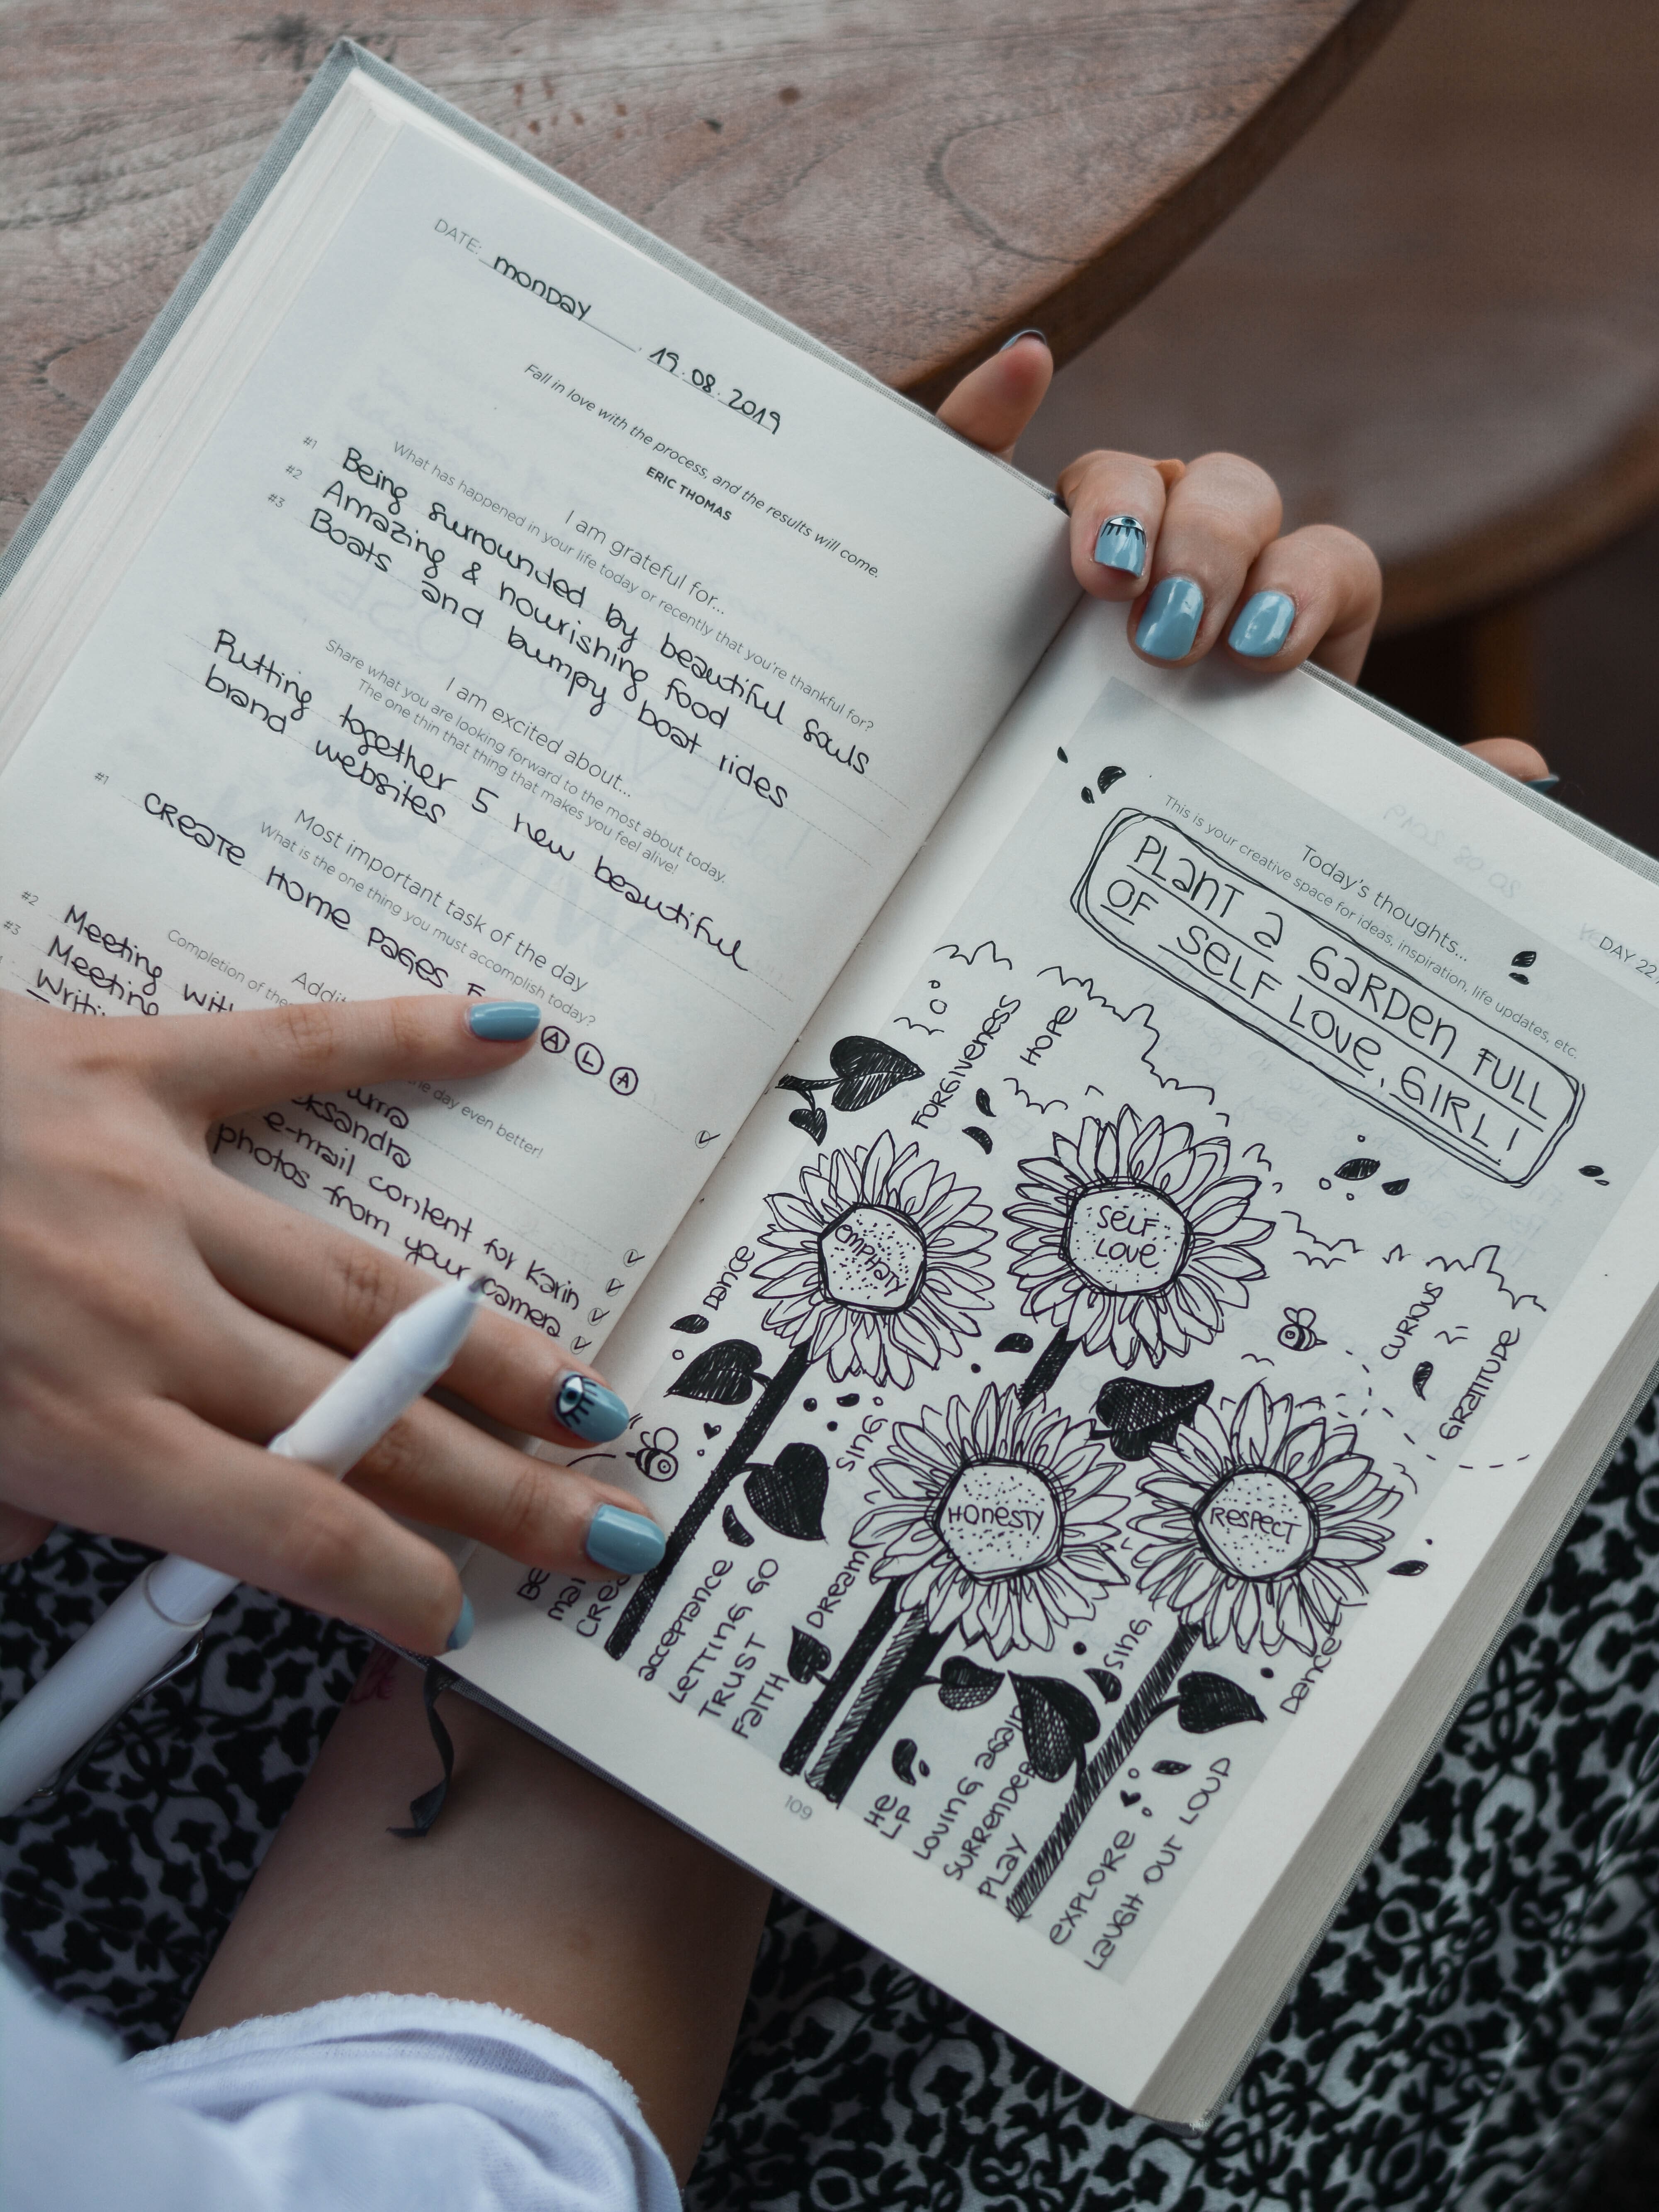 DATE: monDay 19.08.2019
Fall in love with the process, and the results will come.
ERIC THOMAS
I am grateful for...
What has happened in your life today or recently that you're thankful for?
#1 Being surrounded by beautiful souls
#2 Amazing & nourishing food
#3 Boats and bumpy boat rides
I am excited about...
Share what you are looking forward to the most about today.
The one thin that thing that makes you feel alive!
Putting together 5 new beautiful
brand websites
Most important task of the day
What is the one thing you must accomplish today?
#1 CREATE HOME PAGES F
A L A
Completion of the
the day even better!
#2 Meeting with
#3 Meeting
e-mail content for Karin
photos from your camera
DAY 22
Today's thoughts...
This is your creative space for ideas, inspiration, life updates, etc.
PLANT a GARDEN FULL
OF SELF LOVE, GIRL!
FORGIVENESS
HOPE
EMPHATY
SELF
LOVE
DANCE
CURIOUS
GRATITUDE
SING
HONESTY
RESPECT
acceptance
LETTING GO
TRUST
FAITH
DREAM
SING
DANCE
HE
LP
LOVING AGAIN
SURRENDER
PLAY
EXPLORE
LAUGH OUT LOUD
109